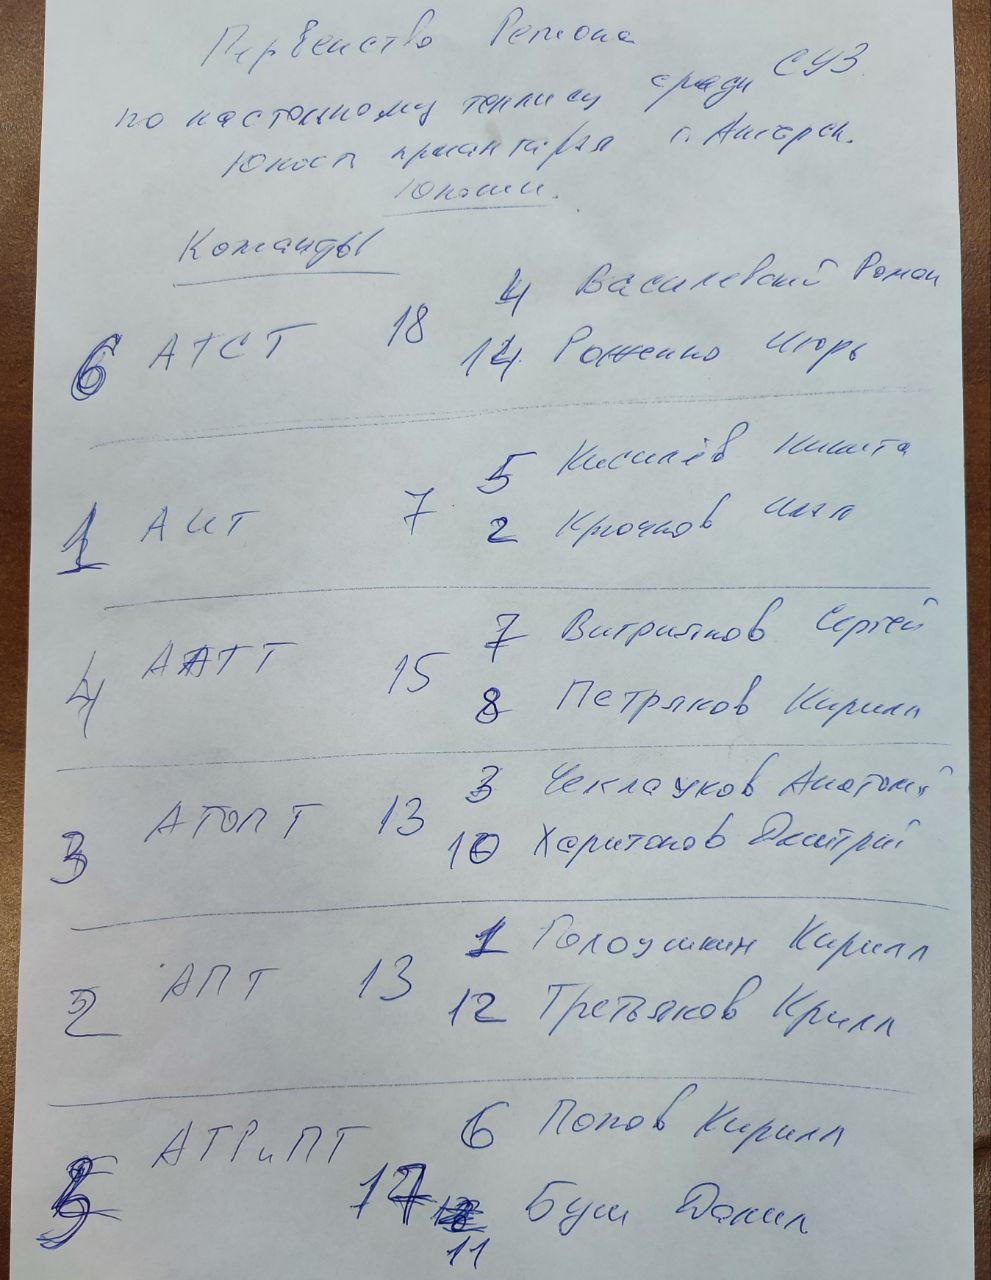 Первенство Региона
по настольному теннису среди СУЗ
Юность приангарья г. Ангарск.
Юноши.
Команды
6 АТСТ 18 4 Василевский Роман
14 Роженко Игорь
1 АИТ 7 5 Кисилёв Никита
2 Крючков Илья
4 ААТТ 15 7 Витряков Сергей
8 Петряков Кирилл
3 АТОПТ 13 3 Чеклауков Анатолий
10 Харитонов Дмитрий
2 АПТ 13 1 Голоушкин Кирилл
12 Третьяков Крилл
5 АТРиПТ 17 6 Попов Кирилл
11 Буш Данил